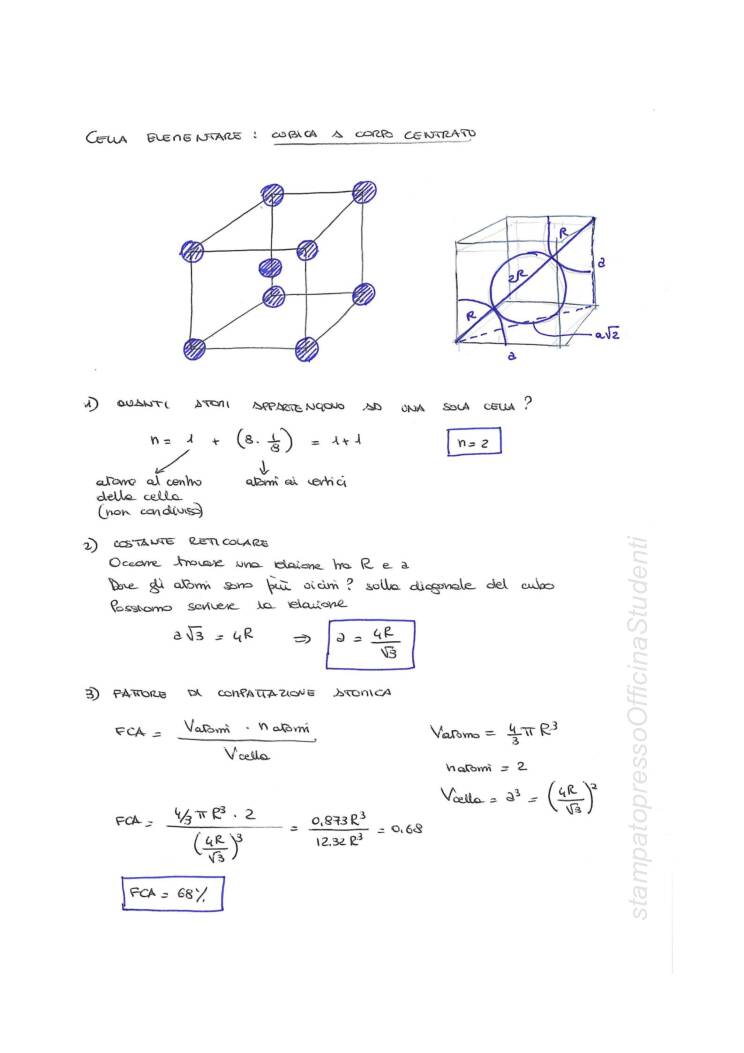 CELLA ELEMENTARE : CUBICA A CORPO CENTRATO
R
2R
R
a
a√2
a
1) QUANTI ATOMI APPARTENGONO AD UNA SOLA CELLA ?
n = 1 + (8 · 1/8) = 1+1
n = 2
atomo al centro della cella (non condiviso)
atomi ai vertici
2) COSTANTE RETICOLARE
Occorre trovare una relazione tra R e a
Dove gli atomi sono più vicini ? sulla diagonale del cubo
Possiamo scrivere la relazione
a√3 = 4R ⇒ a = 4R/√3
3) FATTORE DI COMPATTAZIONE ATOMICA
FCA = Vatomi · n atomi / Vcella
Vatomo = 4/3 π R³
n atomi = 2
Vcella = a³ = (4R/√3)²
FCA = 4/3 π R³ · 2 / (4R/√3)³ = 0,873R³ / 12.32R³ = 0,68
FCA = 68%
stampatopressoOfficinaStudenti